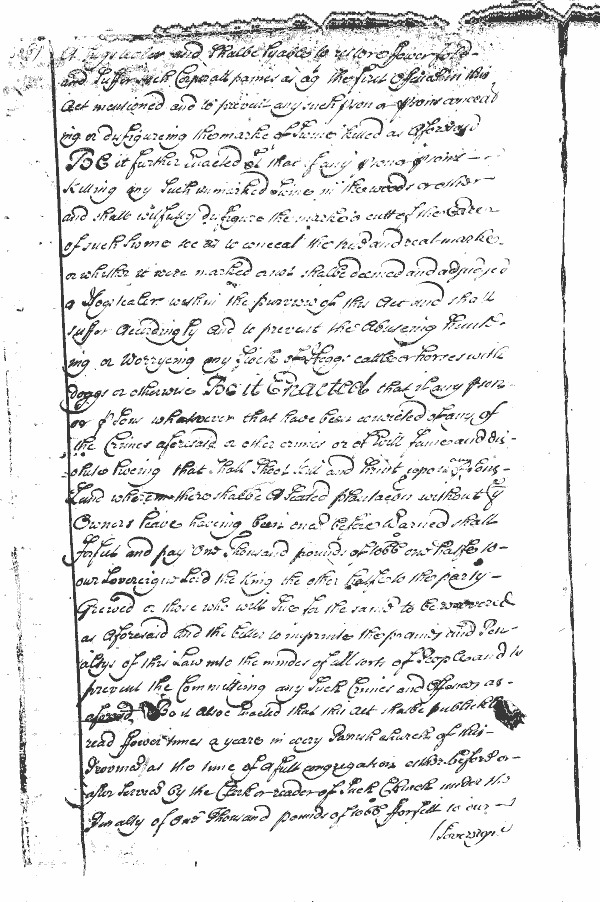 A Hogstealer and shalbe lyable to restore fower fold
and suffer such Corporall paines as by the first offence in this
Act mentioned and to prevent any such pson or psons conceal
ing or disfigureing the marke of swine killed as aforesd
BE it further Enacted &c that if any pson or psons
killing any such unmarked swine in the woods or other
and shall willfully disfigure the marke or cutt of the Eares
of such swine to conceal the true and real marke
or whether it were marked or not shalbe deemed and adjudged
a Hogstealer within the purview of this Act and shall
suffer accordingly And to prevent the Abuseing Hunt-
ing or Worryeing any stock of Hoggs cattle or horses with
doggs or otherwise Be it Enacted that if any pson
or psons whatsoever that have been convicted of any of
the Crimes aforesaid or other crimes or of evill fame and dis-
olute liveing that shall shoot kill and hunt upon any psons
Land where there shalbe a seated plantacon without ye
Owners leave haveing been once before warned shall
forfeit and pay one thousand pounds of tobb one halfe to
our Sovereigne Lord the King the other halfe to the party
Grieved or those who will sue for the same to be recovered
as aforesaid And the better to imprinte the pmisses and Pen-
altys of this Law into the mindes of all sorts of People and to
prevent the Committing any such Crimes and offences as
aforesd Be it alsoe Enacted that this Act shalbe publickly
read fower times a yeare in every Parrish church of this
Province at the time of a full congregation either before or
after service by the Clerk or reader of such Church under the
Penalty of One thousand pounds of tobb forfeit to our
Sovereigne